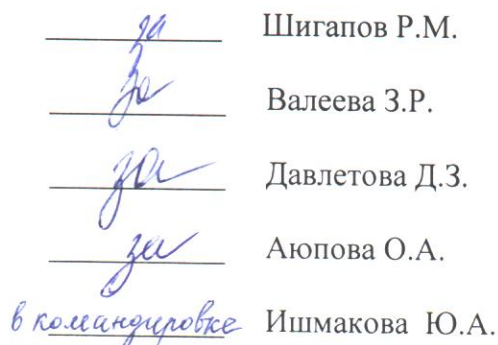 за Шигапов Р.М.
за Валеева З.Р.
за Давлетова Д.З.
за Аюпова О.А.
в командировке Ишмакова Ю.А.